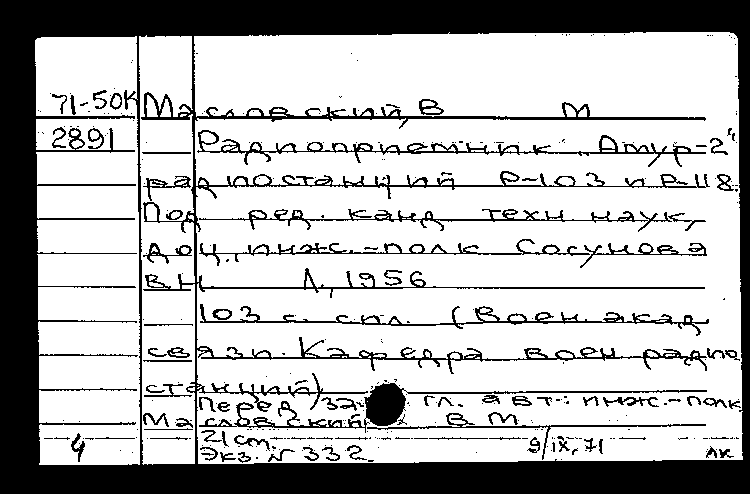 71-50К Масловский, В М
2891 Радиоприемник „Амур-2"
радиостанций Р-103 и Р-118.
Под ред. канд техн наук,
доц., инж.-полк Сосунова
В Н. Л., 1956.
103 с. с ил. (Воен. акад
связи. Кафедра воен радио
станций)
Перед гл. авт.: инж.-полк
Масловский В. М.
21 см.
4 Экз. № 332 9/IX, 71 лк